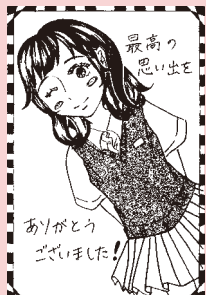 最高の
思い出を
ありがとう
ございました!